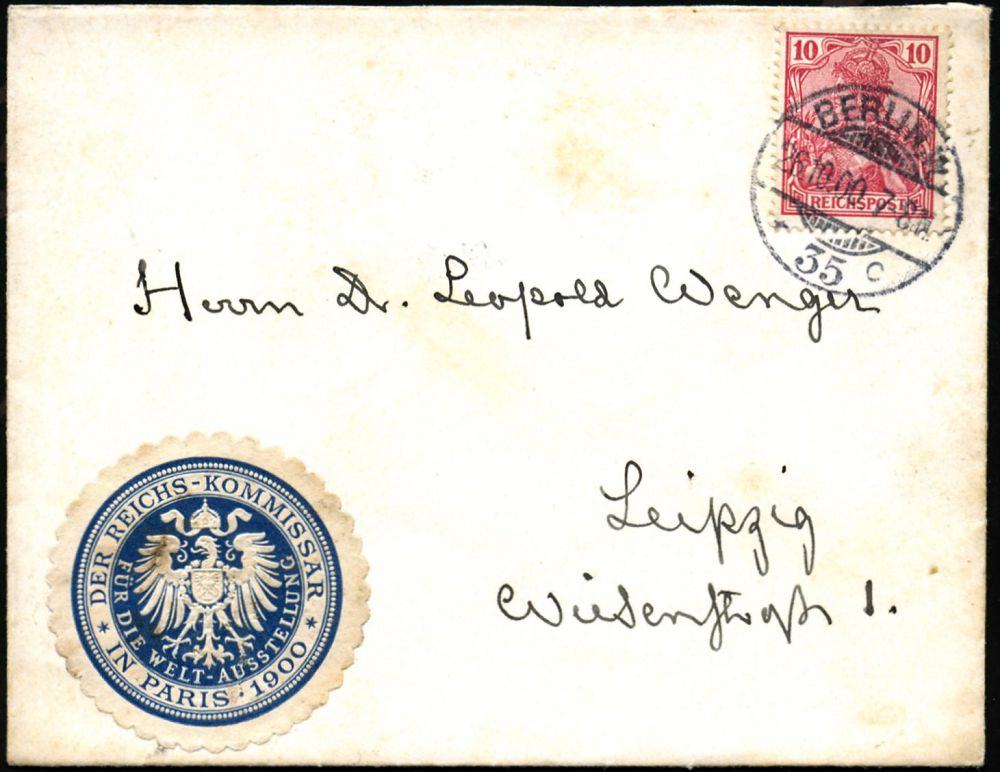 10 10
REICHSPOST
BERLIN, W
26.10.00.7-8N.
* 35 c
Herrn Dr. Leopold Wenger
Leipzig
Wiesenstraße 1.
* DER REICHS-KOMMISSAR *
FÜR DIE WELT-AUSSTELLUNG
IN PARIS · 1900